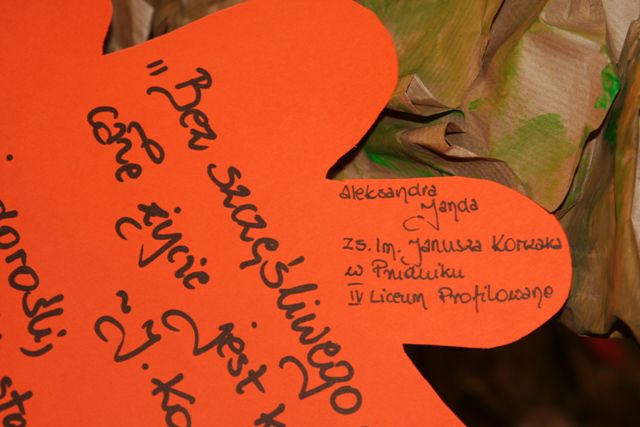 „Bez szczęśliwego
całe życie jest k
~ J. Ko
dorośli,
sta
Aleksandra
Janda
ZS. Im. Janusza Korczaka
w Prudniku
IV Liceum Profilowane